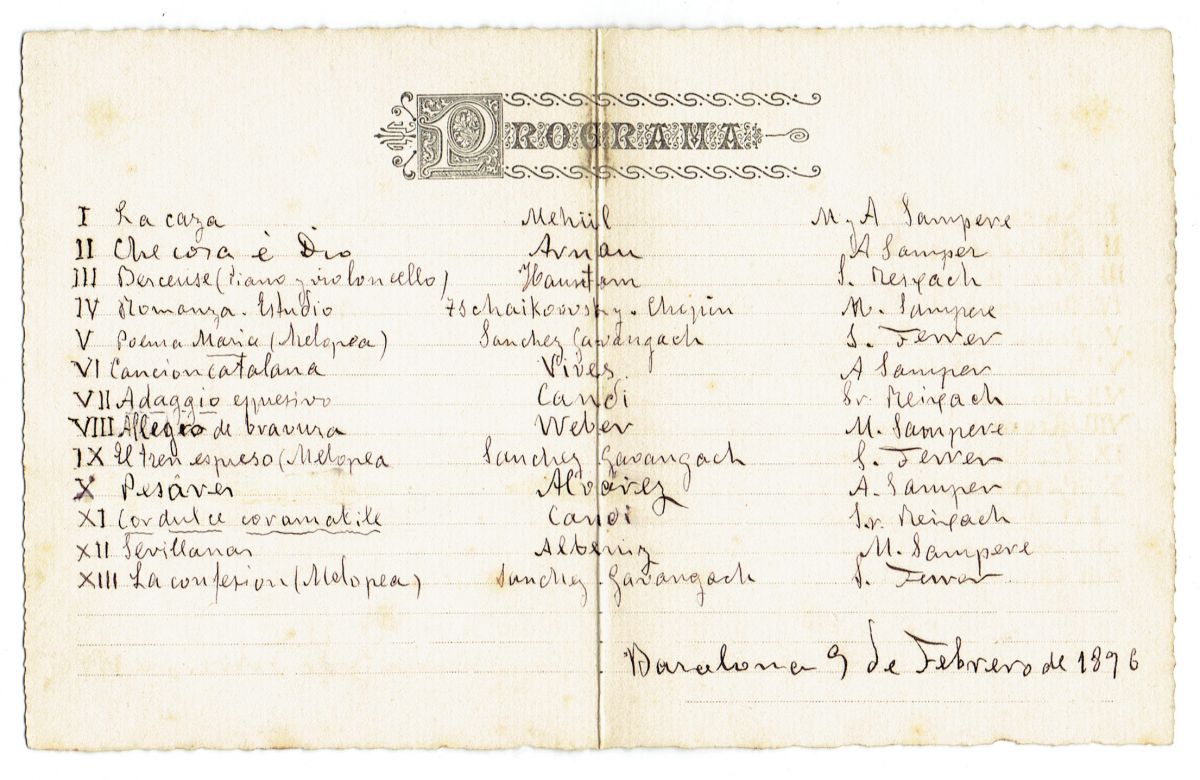 PROGRAMA
I La caza Mehül M. y A Sampere
II Che cosa è Dio Arnau A Samper
III Berceuse (Piano y violoncello) S. Reixach
IV Romanza. Estudio Tschaikovvsky. Chopin M. Sampere
V Poema Maria (Melopea) Sanchez Gavangach S. Ferrer
VI Cancion catalana Vives A Samper
VII Adaggio espresivo Candi Sr. Reixach
VIII Allegro de bravura Weber M. Sampere
IX El tren espreso (Melopea Sanchez Gavangach S. Ferrer
X Pesares Alvarez A. Samper
XI Cor dulce cor amabile Candi Sr. Reixach
XII Sevillanas Albeniz M. Sampere
XIII La confesion (Melopea) Sanchez Gavangach S. Ferrer
Barcelona 9 de Febrero de 1896